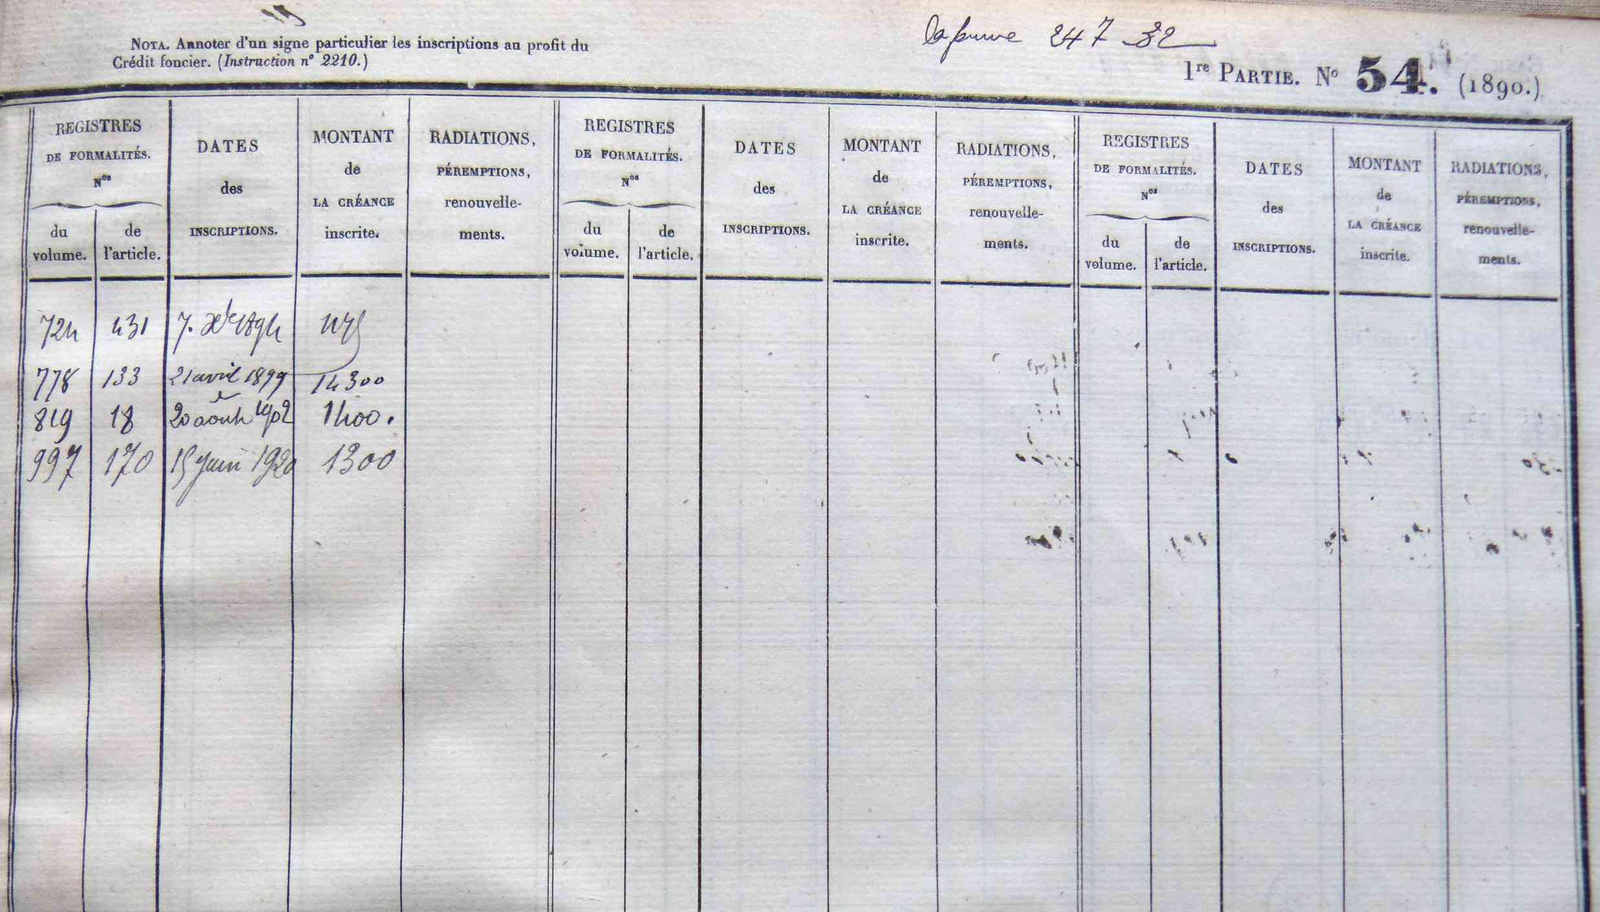 NOTA. Annoter d'un signe particulier les inscriptions au profit du
Crédit foncier. (Instruction n° 2210.)
247 32
1re PARTIE. N° 54. (1890.)
REGISTRES DE FORMALITÉS. Nos du volume. de l'article.
DATES des INSCRIPTIONS.
MONTANT de LA CRÉANCE inscrite.
RADIATIONS, PÉREMPTIONS, renouvelle-ments.
REGISTRES DE FORMALITÉS. Nos du volume. de l'article.
DATES des INSCRIPTIONS.
MONTANT de LA CRÉANCE inscrite.
RADIATIONS, PÉREMPTIONS, renouvelle-ments.
REGISTRES DE FORMALITÉS. Nos du volume. de l'article.
DATES des INSCRIPTIONS.
MONTANT de LA CRÉANCE inscrite.
RADIATIONS, PÉREMPTIONS, renouvelle-ments.
724 431 7.
778 133 21 avril 1899 14300
819 18 20 août 1902 1400.
997 170 15 juin 1920 1300